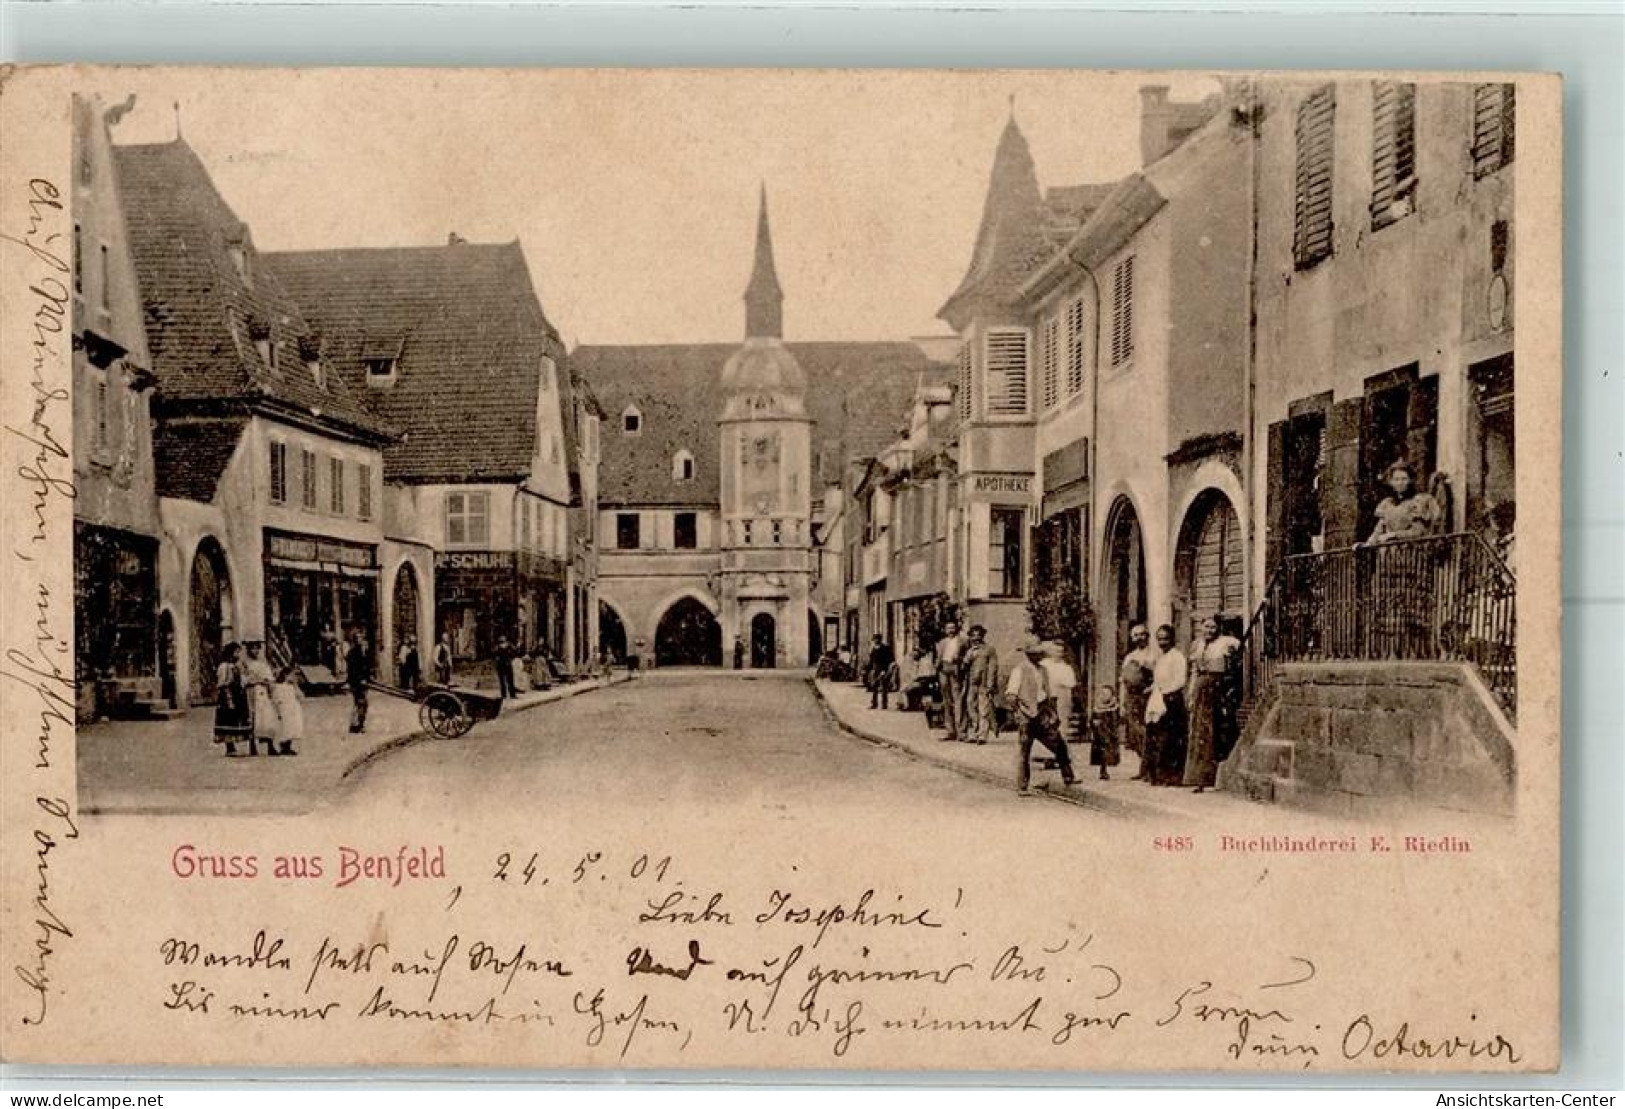 APOTHEKE
SCHUHL
Gruss aus Benfeld
8485 Buchbinderei E. Riedin
, 24. 5. 01.
Liebe Josephine!
Wandle stets auf Rosen Und auf grüner Au!
bis einer kommt in Hosen, U. dich nimmt zur Frau
Deine Octavia
Auf Wiedersehen, nächsten Sonntag
delcampe.net
Ansichtskarten-Center